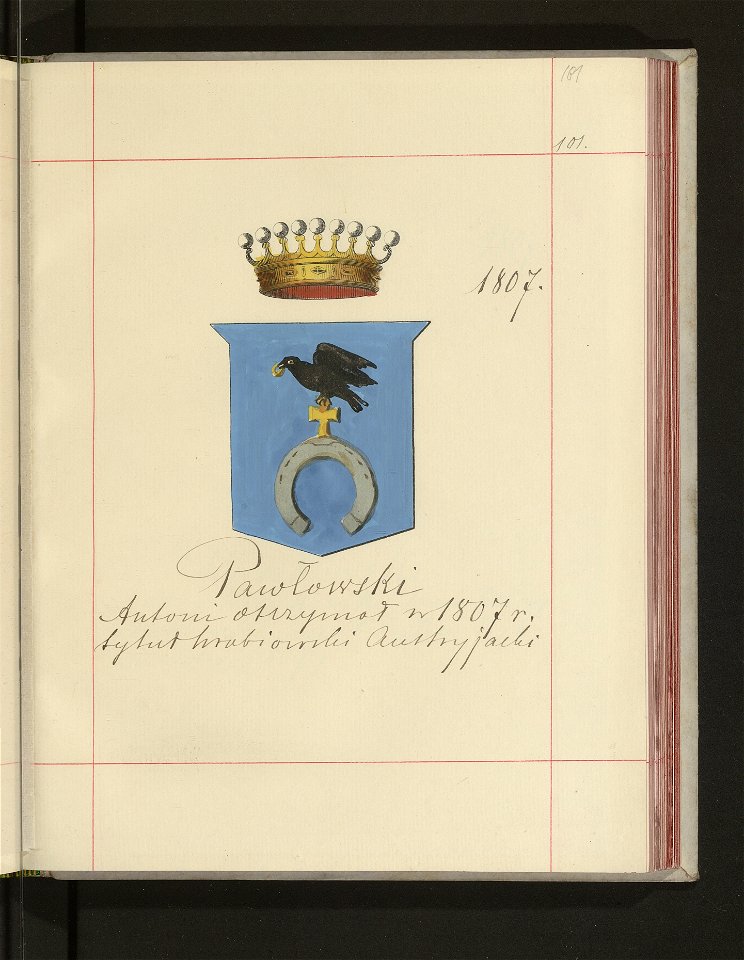 181
101.
1807.
Pawłowski
Antoni otrzymał w 1807 r.
tytuł hrabiowski Austryjacki